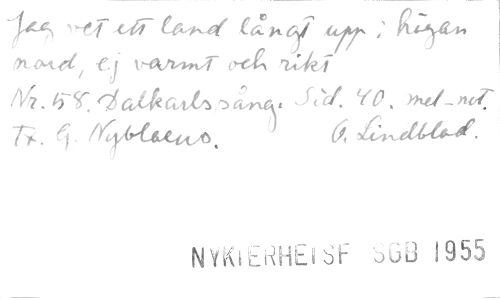 Jag vet ett land långt upp i högan
nord, ej varmt och rikt
Nr. 58. Dalkarlssång. Sid. 40. mel-not.
Tx. G. Nyblaeus. O. Lindblad.
NYKTERHETSF SGB 1955